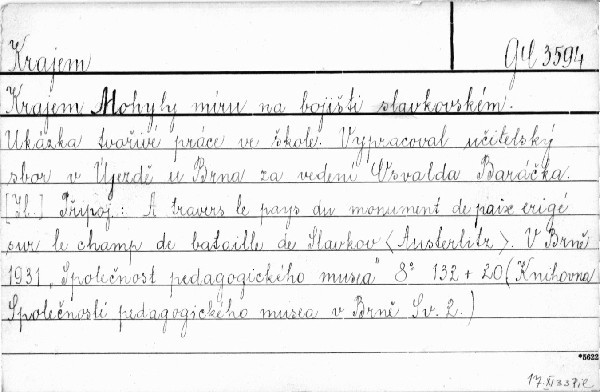 Krajem
Gll 3594
Krajem Mohyly míru na bojišti slavkovském.
Ukázka tvořivé práce ve škole. Vypracoval učitelský
sbor v Újezdě u Brna za vedení Osvalda Baráčka.
[Il.] Připoj.: A travers le pays du monument de paix erigé
sur le champ de bataille de Slavkov <Austerlitz>. V Brně
1931 „Společnost pedagogického musea" 8° 132 + 20 (Knihovna
Společnosti pedagogického musea v Brně Sv. 2.)
*5622